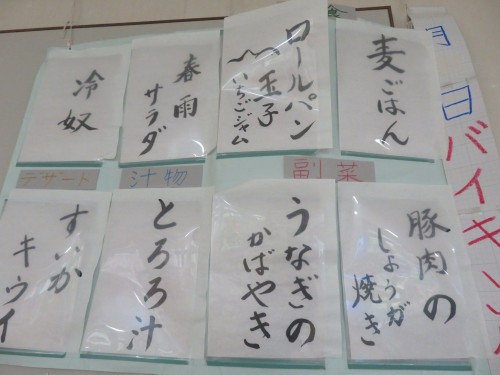 麦ごはん
ロールパン
玉子
いちごジャム
春雨
サラダ
冷奴
副菜
汁物
デザート
豚肉の
しょうが
焼き
うなぎの
かばやき
とろろ汁
すいか
キウイ
月
日
バイキング